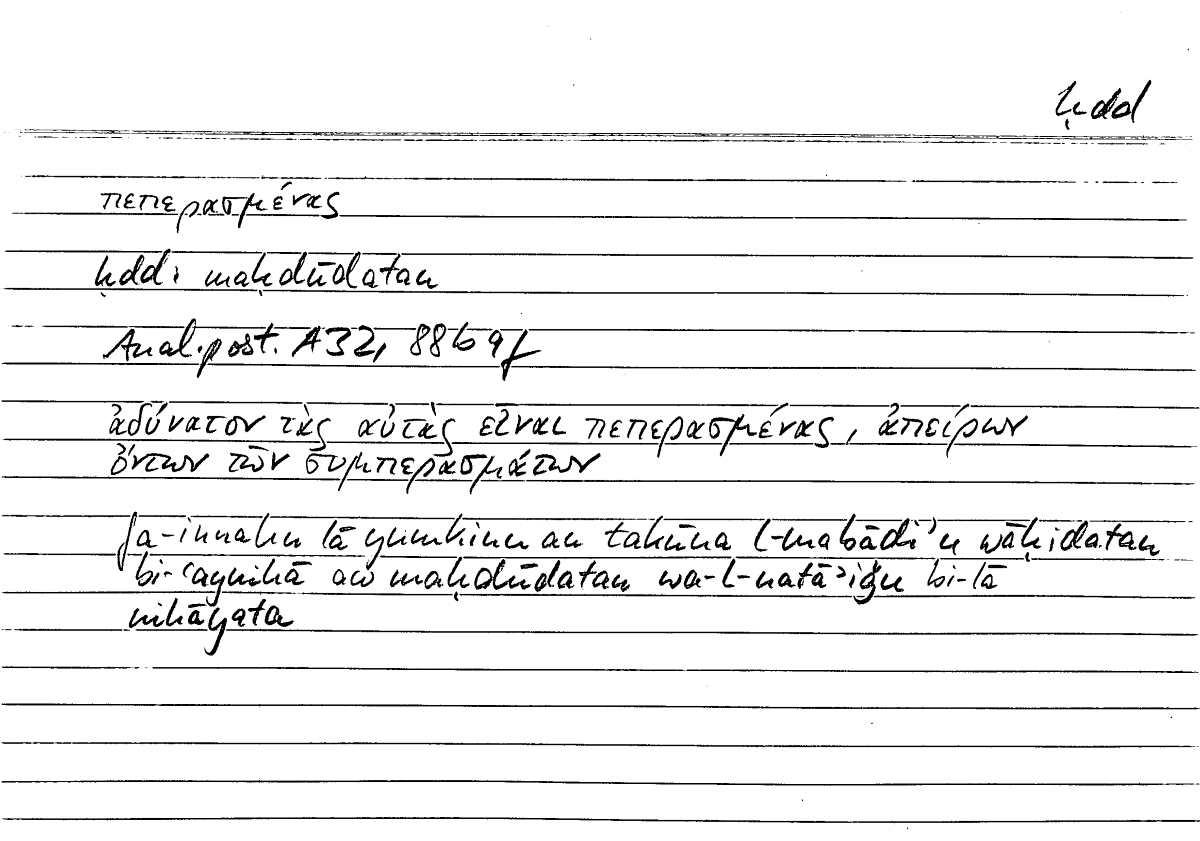 ḥdd
πεπερασμένας
ḥdd: maḥdūdatan
Anal.post. A32, 88b 9f
ἀδύνατον τὰς αὐτὰς εἶναι πεπερασμένας, ἀπείρων
ὄντων τῶν συμπερασμάτων
fa-innahu lā yumkinu an takūna l-mabādiʾu wāḥidatan
bi-ʿaynihā aw maḥdūdatan wa-l-natāʾiǧu bi-lā
nihāyata